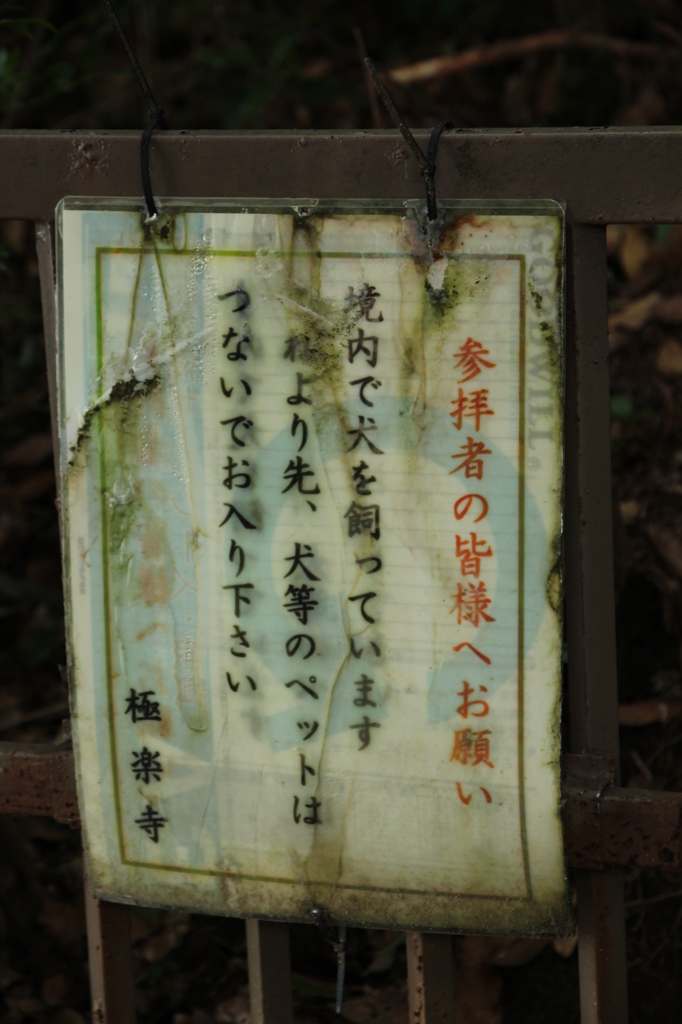 参拝者の皆様へお願い
境内で犬を飼っています
より先、犬等のペットは
つないでお入り下さい
極楽寺
GOODWILL